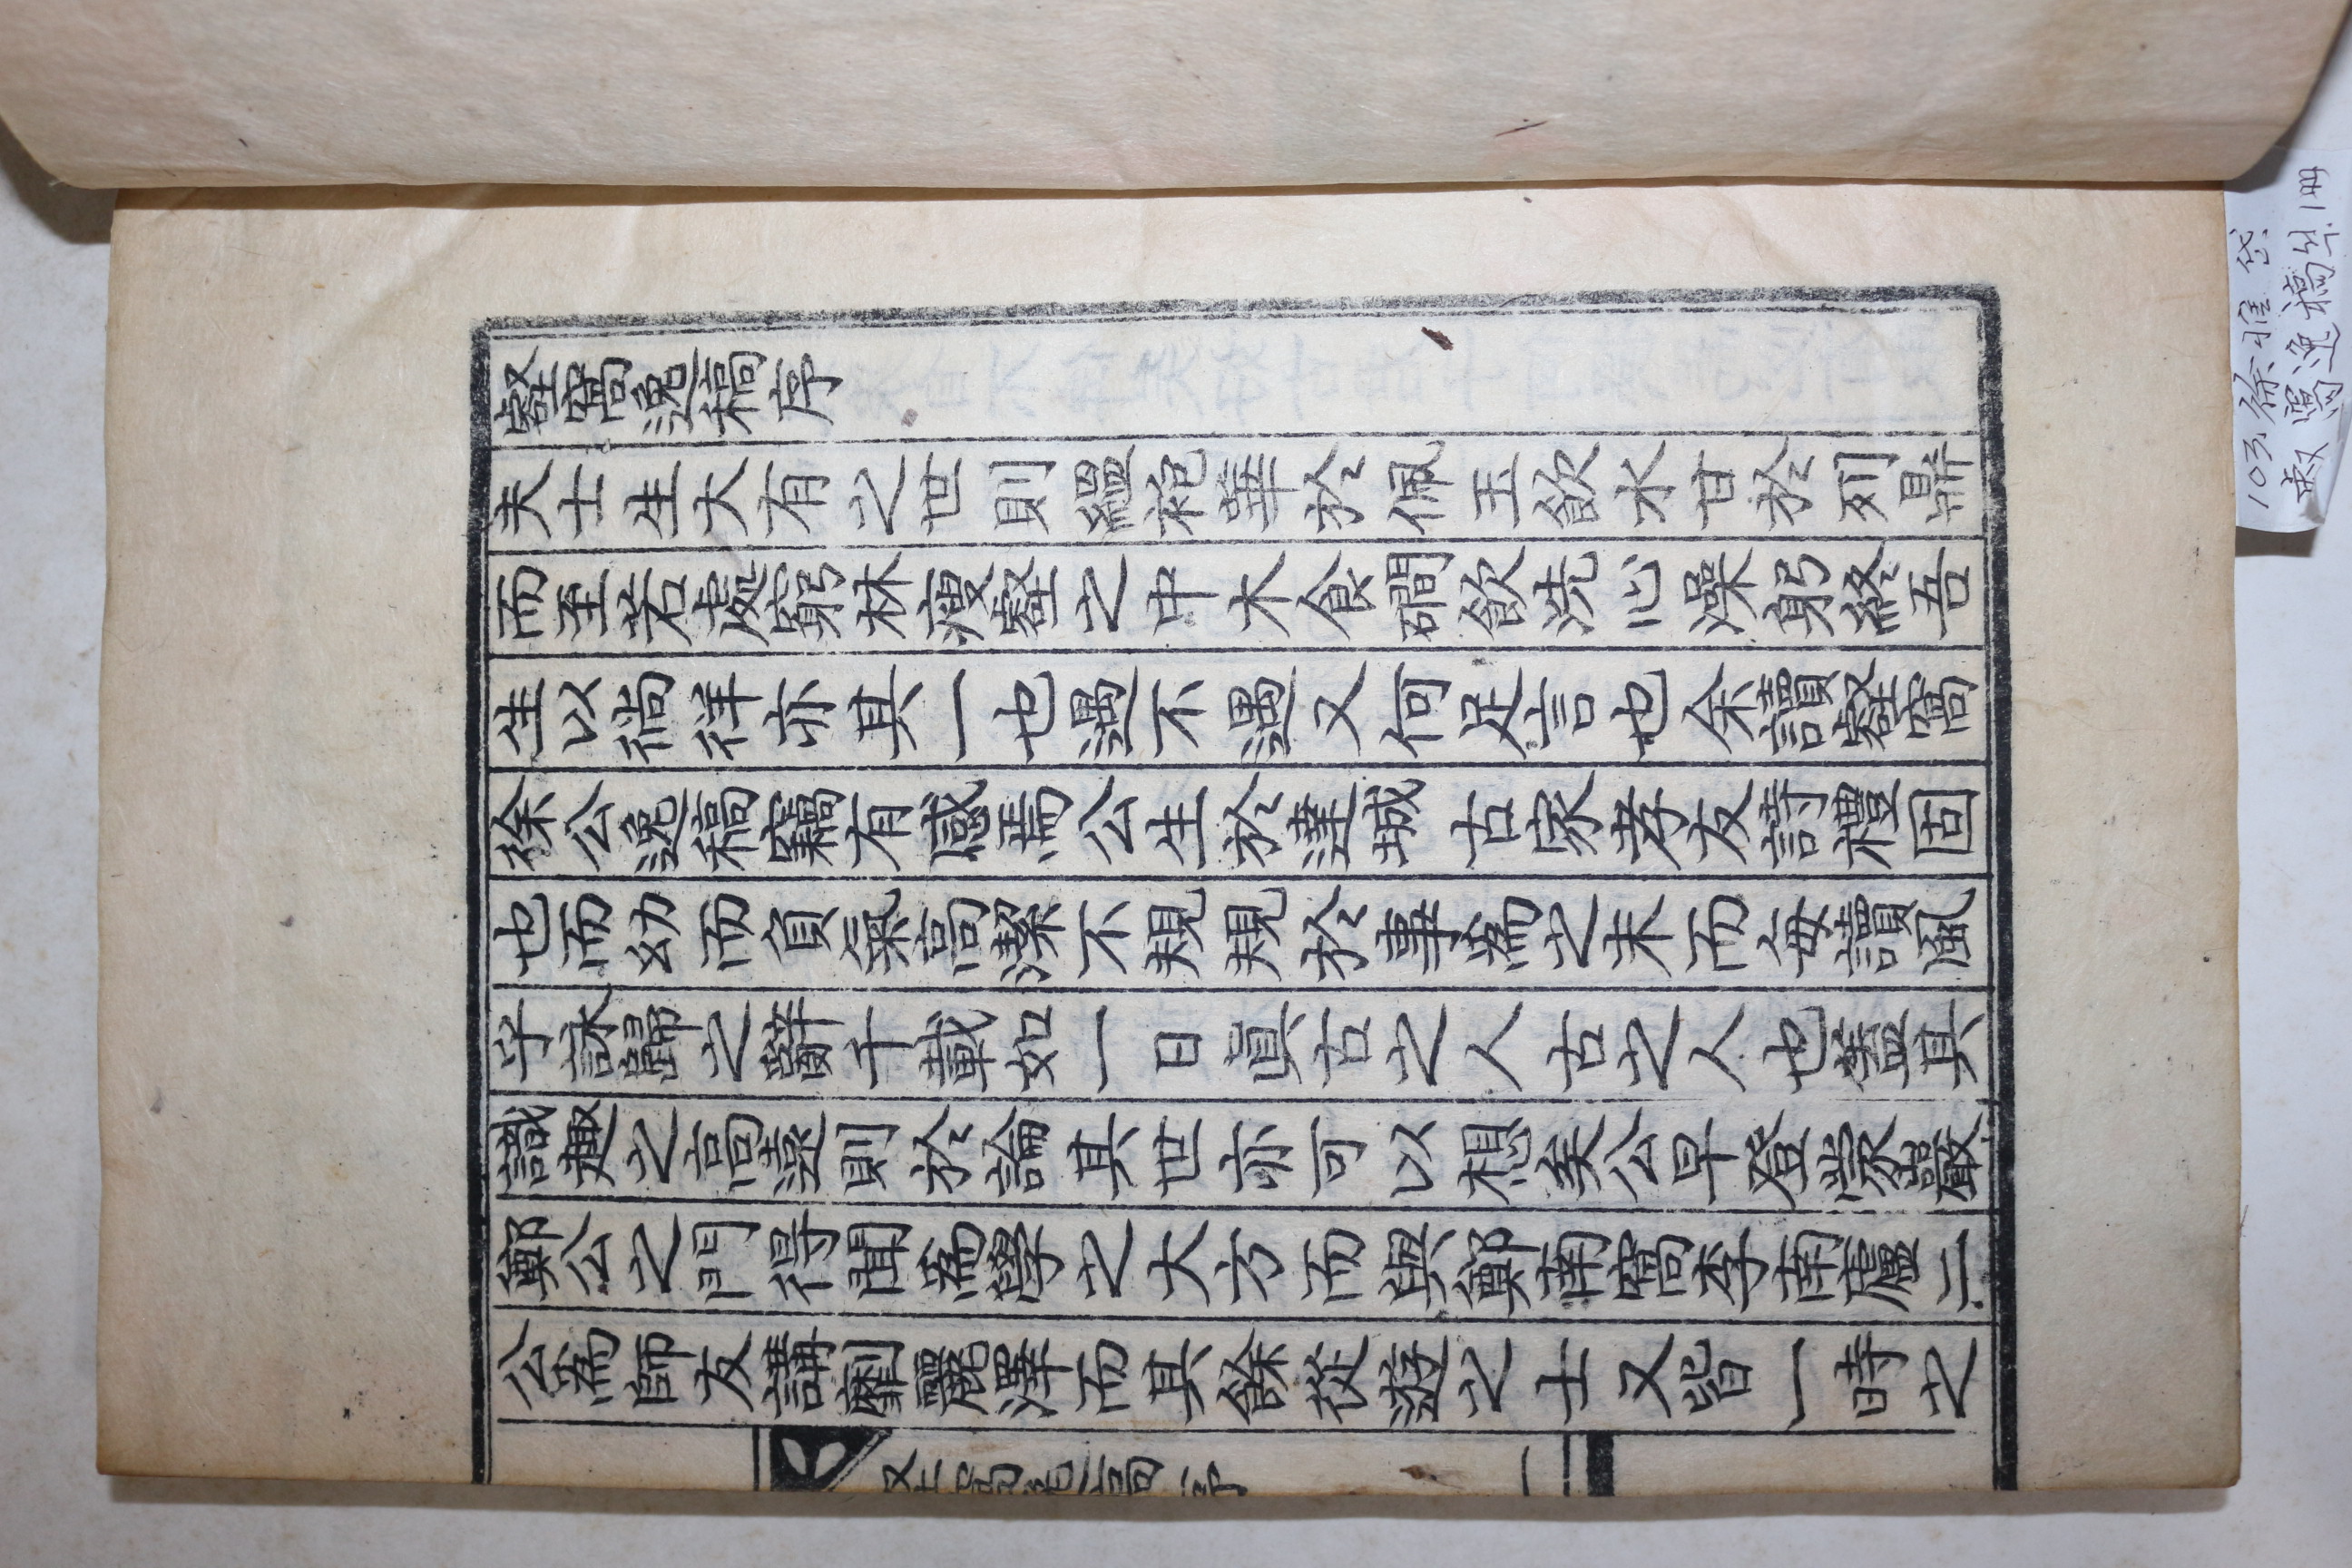 壑窩逸稿序
夫士生大有之世則縕袍華於佩玉飮水甘於列鼎
而至若處窮林瘦壑之中木食磵飮洗心澡躬終吾
生以徜徉亦其一也遇不遇又何足言也余讀壑窩
徐公逸稿竊有感焉公生於達城古家孝友詩禮固
也而幼而負氣高潔不規規於事爲之末而每讀風
乎詠歸之辭千載如一日眞古之人古之人也盖其
識趣之高遠則於論其世亦可以想矣公早登蒙巖
鄭公之門得聞爲學之大方而與鄭南窩李南廬二
公爲師友講劘麗澤而其餘從遊之士又皆一時之
壑窩逸稿序
一
103 徐雅
窩逸稿 1冊